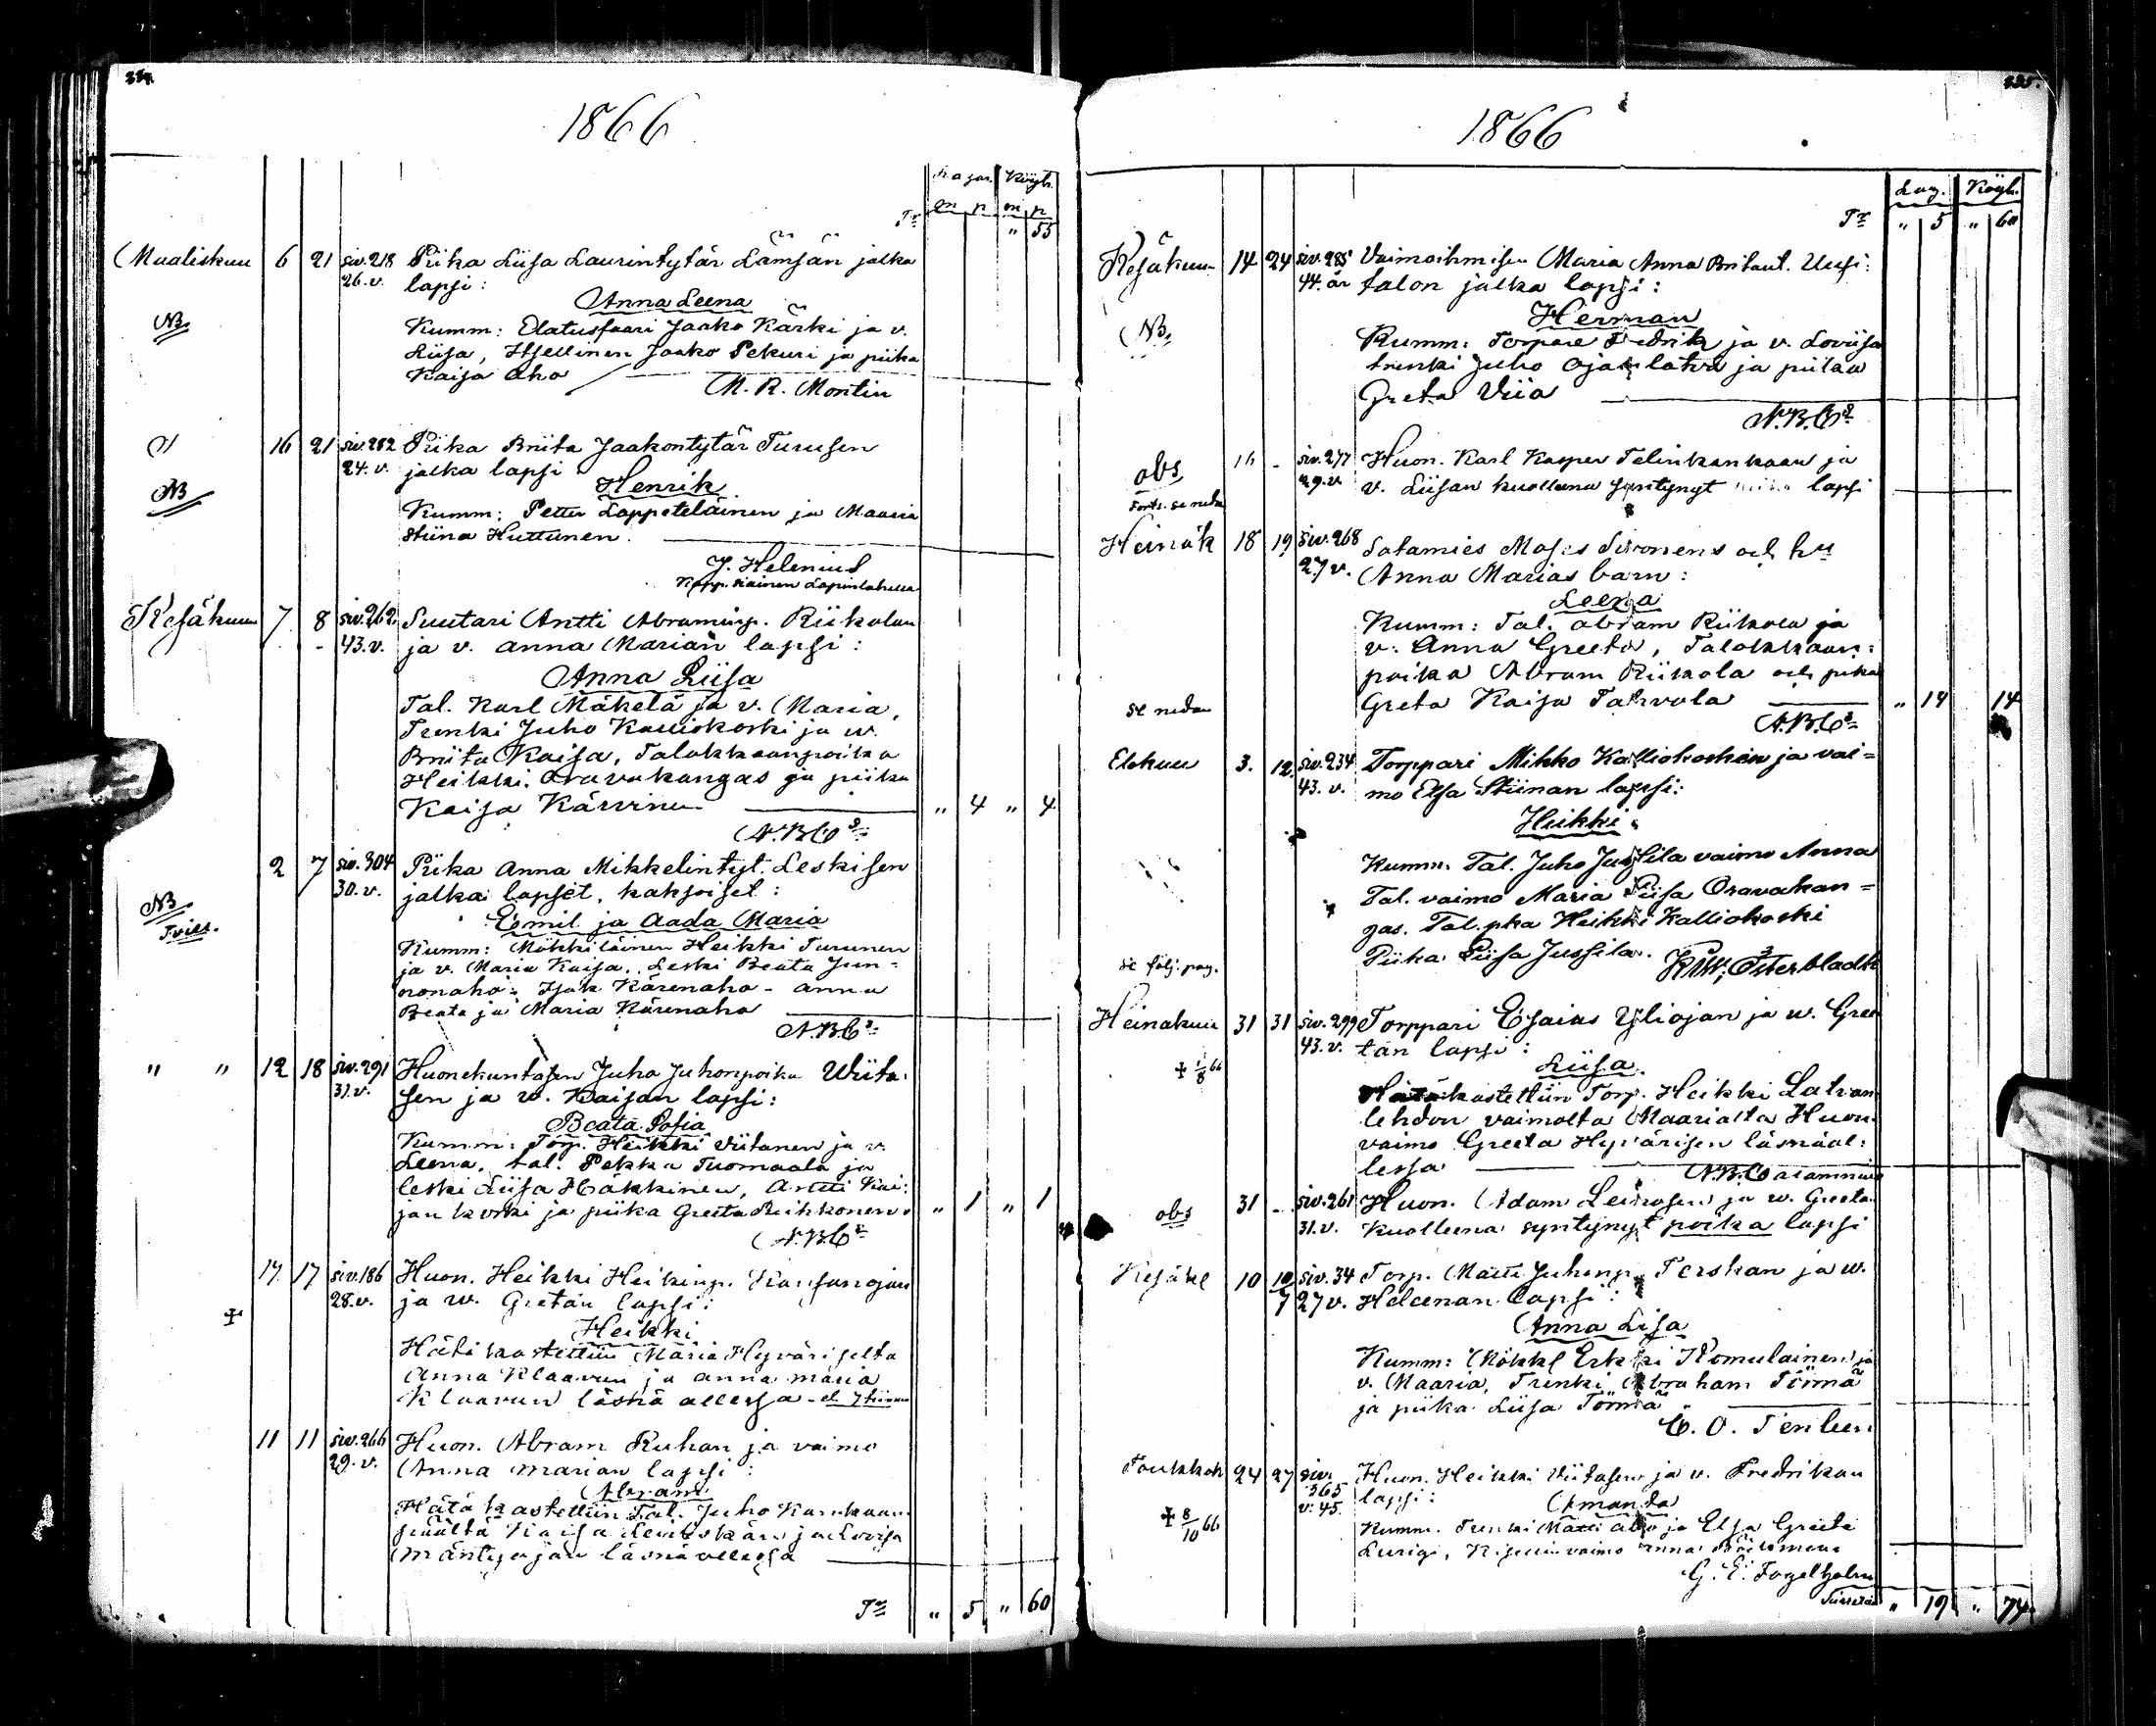 224.
1866
Lazar. Köyh.
m p m p
Tr " 55
Maaliskuu 6 21 siv. 218 Piika Liisa Laurintytär Lämsän jalka
26. v. lapsi:
Anna Leena
NB Kumm: Elatusfaari Jaako Kärki ja v.
Liisa, Itsellinen Jaako Pekuri ja piika
Kaisa Aho
M. R. Montin
" 16 21 siv. 282 Piika Briita Jaakontytär Turusen
24. v. jalka lapsi
Henrik
NB Kumm: Petter Lappeteläinen ja Maaria
Stiina Huttunen
J. Helenius
Kapp. Lapinlahella
Kesäkuu 7 8 siv. 262 Suutari Antti Abraminp. Riikolan
43. v. ja v. Anna Marian lapsi:
Anna Liisa
Tal. Karl Mäkelä ja v. Maria,
Trenki Juho Kalliokoski ja w.
Briita Kaisa, Talokkaanpoika
Heikki Oravakangas ja piika
Kaisa Kärvinen " 4 " 4
N. B. Cs
2 7 siv. 304 Piika Anna Mikkelintyt. Leskisen
30. v. jalka lapset, kaksoiset:
NB Emil ja Aada Maria
Tvill. Kumm: Mökkiläinen Heikki Turunen
ja v. Maria Kaisa, Leski Beata Jun-
nonaho, Isak Kärenaho - Anna
Beata ja Maria Kärenaho
N. B. Cs
" " 12 18 siv. 291 Huonekuntasen Juho Juhonpoika Wiita-
31. v. sen ja w. Kaisan lapsi:
Beata Sofia
Kumm: Torp. Heikki Viitanen ja v.
Leena, tal. Pekka Tuomaala ja
leski Liisa Häkkinen, Antti Kai-
jankoski ja piika Greeta Riihkonen. " 1 " 1
N. B. Cs
17. 17 siv. 186 Huon. Heikki Heikinp. Kansanojan
28. v. ja w. Gretan lapsi:
Heikki
Hätäkastettiin Maria Hyväriseltä
Anna Klaavun ja Anna Maria
Klaavun läsnä ollessa
11 11 siv. 266 Huon. Abram Ruhan ja vaimo
29. v. Anna Marian lapsi:
Abram
Hätäkastettiin Tal. Juho Kankaan-
päältä Kaisa Leinoskän ja Lovisa
Mäntyojan läsnä ollessa
Tr " 5 " 60
225.
1866
Laz. Köyh.
Tr " 5 " 60
Kesäkuu 14 24 siv. 285 Vaimoihmisen Maria Anna Britant. Uusi-
44. år talon jalka lapsi:
Herman
NB. Kumm: Torpare Fredrik ja v. Loviisa
trenki Juho Ojanlatva ja piika
Greta Viia
N. B. Cs
obs 16 - siv. 277 Huon. Karl Kasper Telinkankaan ja
29. v. v. Liisan kuolleena syntynyt lapsi
Forts. se nedan
Heinäk 18 19 siv. 268 Sotamies Moses Sironens och hu
27 v. Anna Marias barn:
Leena
Kumm: Tal. Abram Riikola ja
v. Anna Greeta, Talokkaan-
poika Abram Riikola och pika
se nedan Greta Kaisa Tahvola " 14 14
N. B. Cs
Elokuu 3. 12. siv. 234 Torppari Mikko Kalliokosken ja vai-
43. v. mo Elsa Stiinan lapsi:
Heikki
Kumm. Tal. Juho Jussila vaimo Anna
Tal. vaimo Maria Liisa Oravakan-
gas. Tal. pka Heikki Kalliokoski
Piika Liisa Jussila.
se följ. pag. K. W. Österbladh
Heinäkuu 31 31 siv. 299 Torppari Esaias Yliojan ja w. Gree
43. v. tan lapsi:
+ 1/8 66 Liisa.
Hätäkastettiin Torp. Heikki Latvan
lehdon vaimolta Maarialta Huon.
vaimo Greeta Hyvärisen läsnäol-
lessa
N. B. Cariammus
obs 31 - siv. 261 Huon. Adam Leinosen ja w. Greeta
31. v. Kuolleena syntynyt poika lapsi
Kesäk 10 10/7 siv. 34 Torp. Matti Juhonp. Terskan ja w.
27 v. Heleenan lapsi:
Anna Lisa
Kumm: Mökkl Erkki Komulainen ja
v. Maaria, Trenki Abraham Törmä
ja piika Liisa Törmä
C. O. Tenleen
Toukkok 24 27 siv. 365 Huon. Heikki Viitasen ja v. Fredrikan
v. 45. lapsi:
Amanda
+ 8/10 66 Kumm. Trenki Matti Aho ja Elsa Greeta
Lurig, vaimo Anna
G. E. Fogelholm
Siirretään " 19 " 74